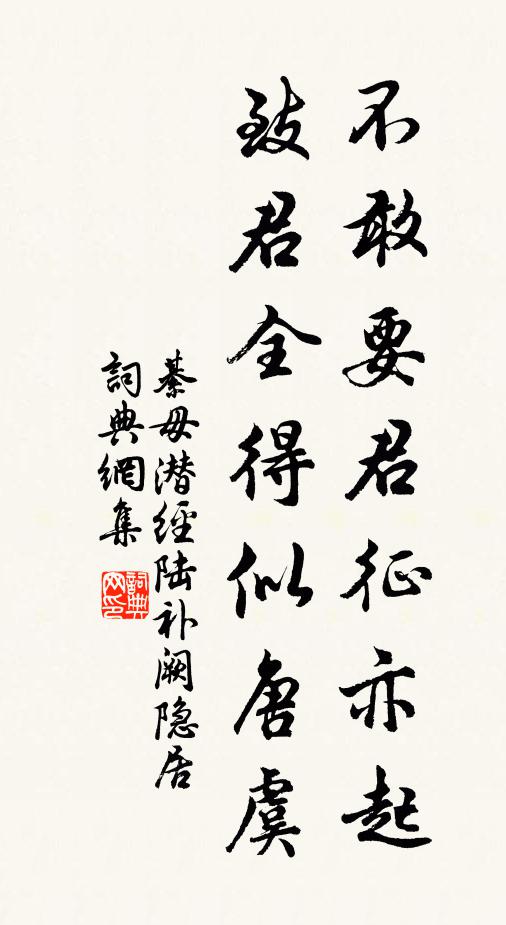 不敢要君征亦起
致君全得似唐虞
綦毋潜經陆补阙隐居
詞典網集
詞典网印